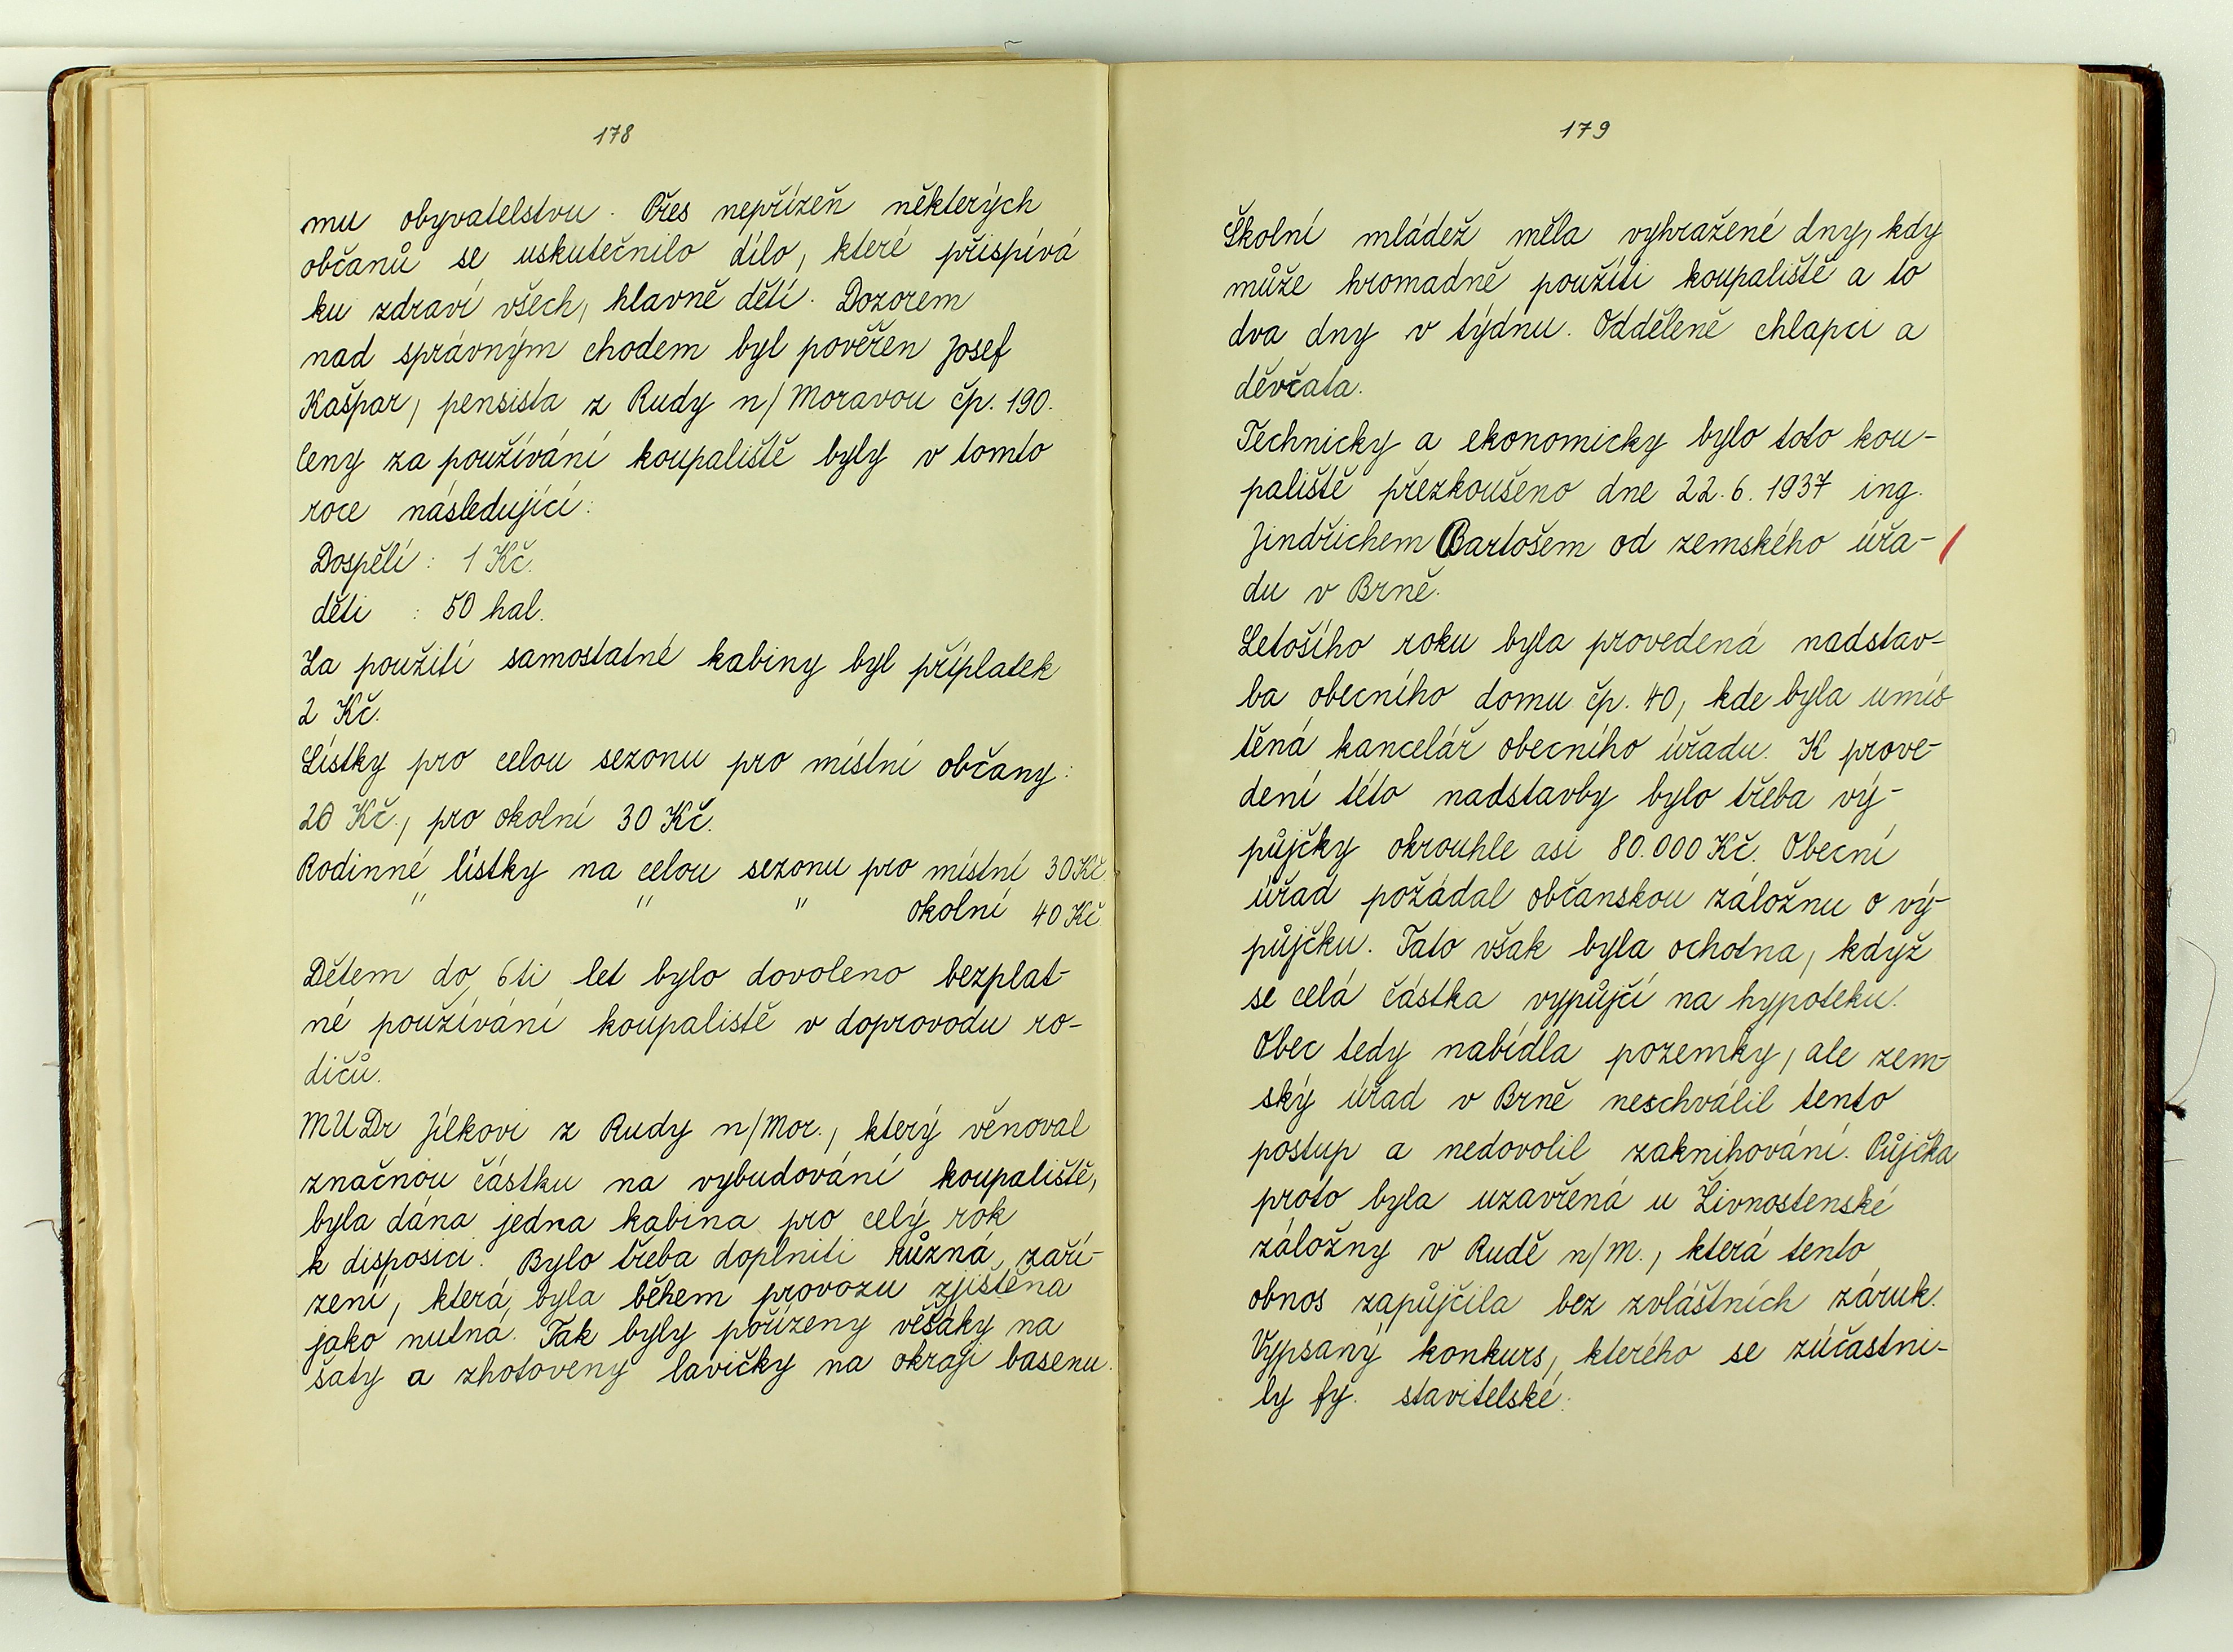 178
mu obyvatelstvu. Přes nepřízeň některých
občanů se uskutečnilo dílo, které přispívá
ku zdraví všech, hlavně dětí. Dozorem
nad správným chodem byl pověřen Josef
Kašpar, pensista z Rudy n/Moravou čp. 190.
Ceny za používání koupaliště byly v tomto
roce následující:
Dospělí: 1 Kč.
děti : 50 hal.
Za použití samostatné kabiny byl příplatek
2 Kč.
Lístky pro celou sezonu pro místní občany:
20 Kč., pro okolní 30 Kč.
Rodinné lístky na celou sezonu pro místní 30 Kč.
" " " okolní 40 Kč.
Dětem do 6ti let bylo dovoleno bezplat-
né používání koupaliště v doprovodu ro-
dičů.
MUDr Jílkovi z Rudy n/Mor., který věnoval
značnou částku na vybudování koupaliště,
byla dána jedna kabina pro celý rok
k disposici. Bylo třeba doplniti různá zaří-
zení, která byla během provozu zjištěna
jako nutná. Tak byly pořízeny věšáky na
šaty a zhotoveny lavičky na okraji basenu.
179
Školní mládež měla vyhražené dny, kdy
může hromadně použíti koupaliště a to
dva dny v týdnu. Odděleně chlapci a
děvčata.
Technicky a ekonomicky bylo toto kou-
paliště přezkoušeno dne 22.6.1937 ing.
Jindřichem Bartošem od zemského úřa-
du v Brně.
Letošího roku byla provedená nadstav-
ba obecního domu čp. 40, kde byla umís
těná kancelář obecního úřadu. K prove-
dení této nadstavby bylo třeba vý-
půjčky okrouhle asi 80.000 Kč. Obecní
úřad požádal občanskou záložnu o vý-
půjčku. Tato však byla ochotna, když
se celá částka vypůjčí na hypoteku.
Obec tedy nabídla pozemky, ale zem-
ský úřad v Brně neschválil tento
postup a nedovolil zaknihování. Půjčka
proto byla uzavřená u Živnostenské
záložny v Rudě n/M., která tento
obnos zapůjčila bez zvláštních záruk.
Vypsaný konkurs, kterého se zúčastni-
ly fy. stavitelské: